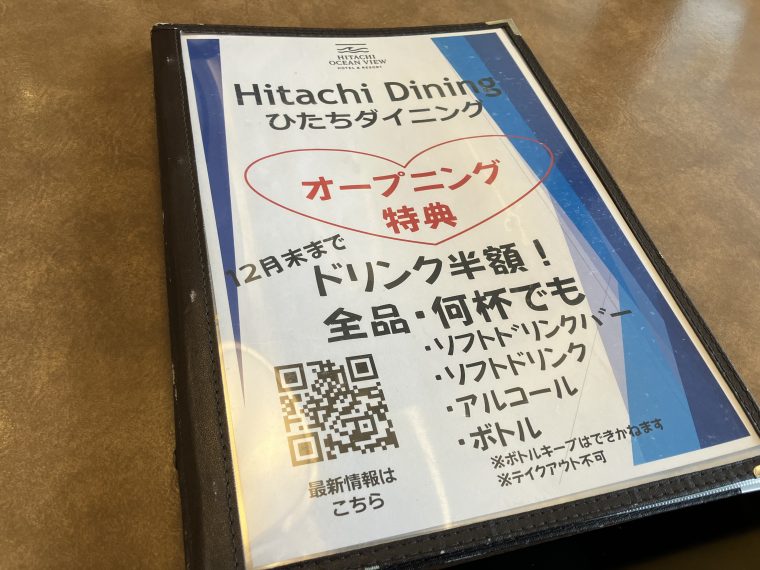 HITACHI
OCEAN VIEW
HOTEL & RESORT
Hitachi Dining
ひたちダイニング
オープニング
特典
12月末まで
ドリンク半額！
全品・何杯でも
・ソフトドリンクバー
・ソフトドリンク
・アルコール
・ボトル
※ボトルキープはできかねます
※テイクアウト不可
最新情報は
こちら